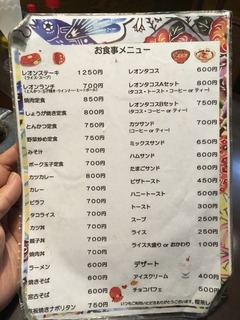 お食事メニュー
レオンステーキ 1250円
(ライス・スープ)
レオンランチ 700円
焼肉定食 850円
しょうが焼き定食 800円
とんかつ定食 750円
野菜炒め定食 750円
みそ汁 700円
ポーク玉子定食 700円
カツカレー 800円
カレー 700円
ピラフ 700円
タコライス 700円
カツ丼 700円
親子丼 600円
焼肉丼 700円
ラーメン 600円
焼きそば 600円
宮古そば 600円
鉄板焼きナポリタン 750円
レオンタコス 600円
レオンタコスAセット 800円
(タコス・トースト・コーヒー or ティー)
レオンタコスBセット 750円
(タコス・コーヒー or ティー)
カツサンド 700円
(コーヒー or ティー)
ミックスサンド 450円
ハムサンド 400円
たまごサンド 400円
ピザトースト 450円
ハニートースト 500円
トースト 300円
スープ 200円
ライス 200円
ライス大盛り or おかわり 100円
デザート
アイスクリーム 400円
チョコパフェ 500円